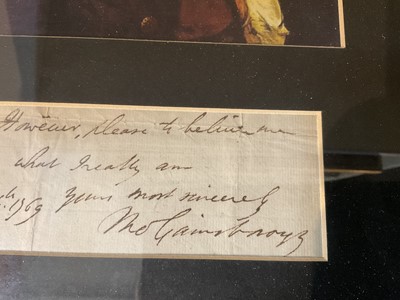 However, please to believe me
what I really am
yours most sincerely
1769
Tho Gainsborough